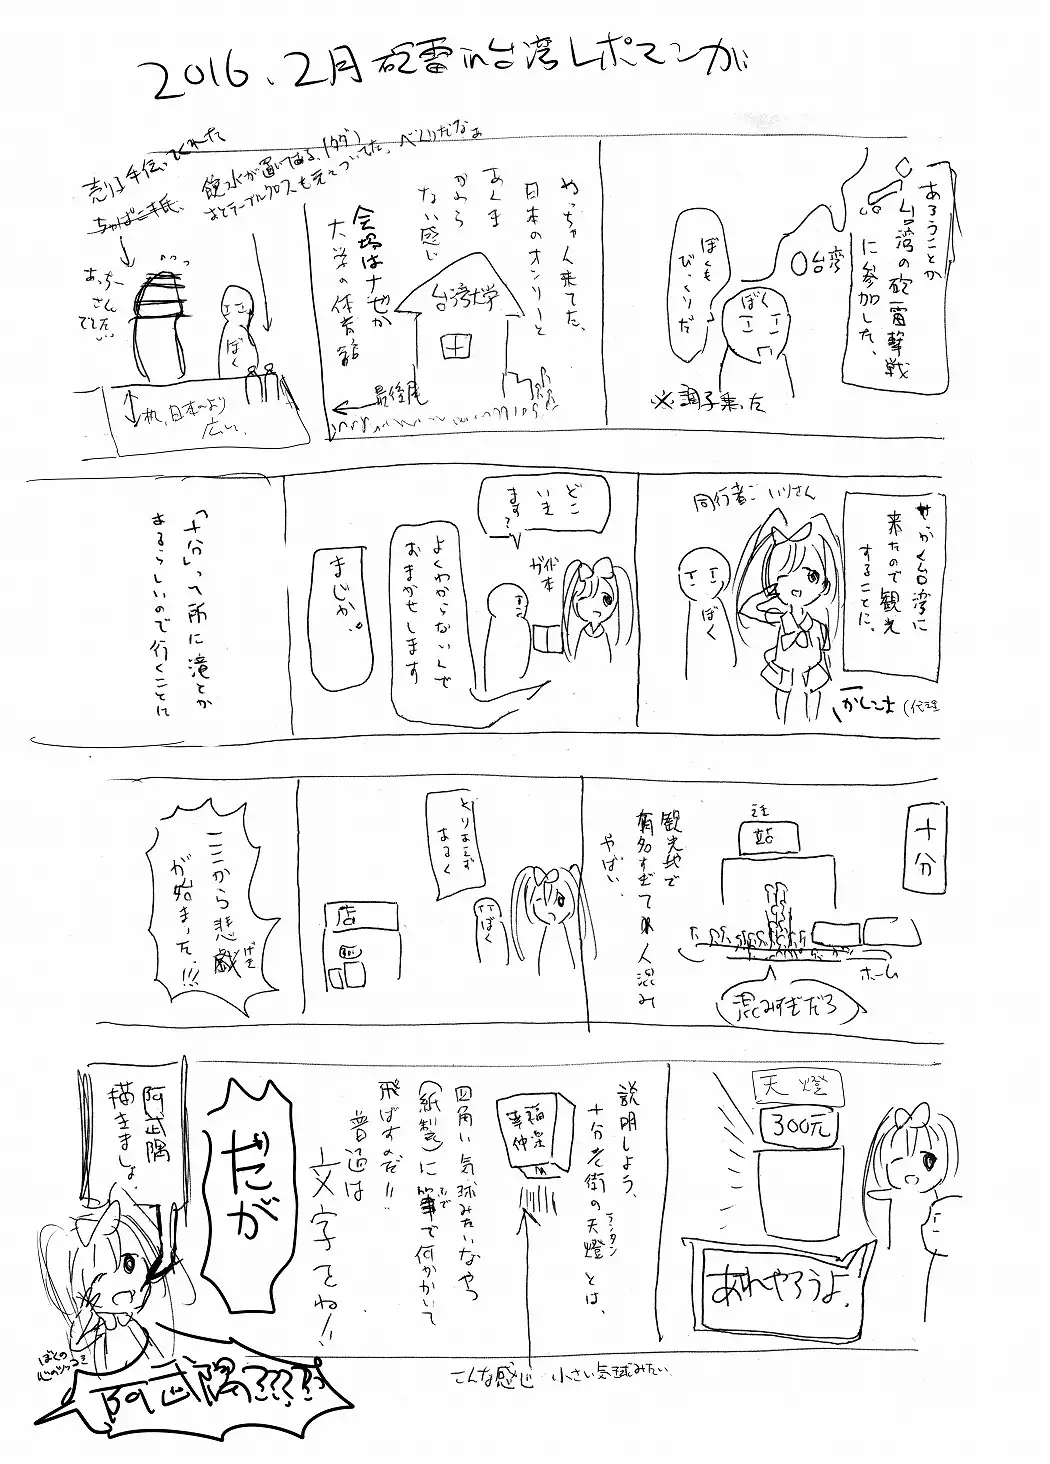 2016.2月砲雷in台湾レポマンガ
あろうことか
台湾の砲雷撃戦
に参加した、
台湾
ぼくも
びっくりだ
ぼく
※調子乗った
やっちゃん来てた、
日本のオンリーと
あんま
かわら
ない感じ
会場はナゼか
大学の体育館
台湾大学
最後尾
売り子手伝ってくれた
飲み水が置いてある、(タダ)
あとテーブルクロスも元々ついてた、べんりだなぁ
あっちー
さん
でした、
ぼく
机、日本より
広い、
せっかく台湾に
来たので観光
することに、
同行者こいりさん
ぼく
かしこま(代理
どこ
いき
ます?
ガイド
本
よくわからないんで
おまかせします
まじか。
「十分」って所に滝とか
あるらしいので行くことに
十分
站
観光地で
有名すぎて人混み
やばい、
ホーム
混みすぎだろ
とりあえず
あるく
ぼく
店
ここから悲劇
げき
が始まった、!!!
天燈
300元
あれやろうよ、
説明しよう、
十分老街の天燈とは、
ランタン
四角い気球みたいなやつ
(紙製)に筆で何かかいて
ふで
飛ばすのだ!!
普通は
文字をね!!
こんな感じ 小さい気球みたい
だが
阿武隈
描きましょ、
ぼくの
心のツッコミ
阿武隈????